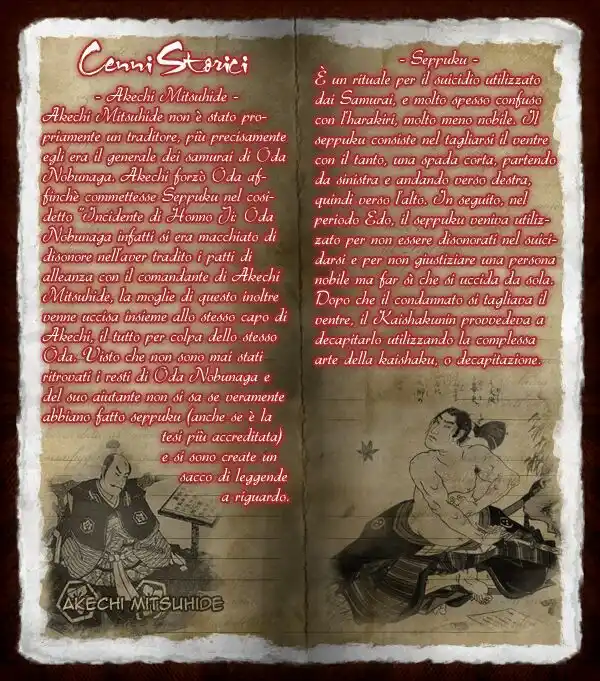 Cenni Storici
- Akechi Mitsuhide -
Akechi Mitsuhide non è stato pro-
priamente un traditore, più precisamente
egli era il generale dei samurai di Oda
Nobunaga. Akechi forzò Oda af-
finchè commettesse Seppuku nel cosi-
detto "Incidente di Honno Ji: Oda
Nobunaga infatti si era macchiato di
disonore nell'aver tradito i patti di
alleanza con il comandante di Akechi
Mitsuhide, la moglie di questo inoltre
venne uccisa insieme allo stesso capo di
Akechi, il tutto per colpa dello stesso
Oda. Visto che non sono mai stati
ritrovati i resti di Oda Nobunaga e
del suo aiutante non si sa se veramente
abbiano fatto seppuku (anche se è la
tesi più accreditata)
e si sono create un
sacco di leggende
a riguardo.
AKECHI MITSUHIDE
- Seppuku -
È un rituale per il suicidio utilizzato
dai Samurai, e molto spesso confuso
con l'harakiri, molto meno nobile. Il
seppuku consiste nel tagliarsi il ventre
con il tanto, una spada corta, partendo
da sinistra e andando verso destra,
quindi verso l'alto. In seguito, nel
periodo Edo, il seppuku veniva utiliz-
zato per non essere disonorati nel suici-
darsi e per non giustiziare una persona
nobile ma far sì che si uccida da sola.
Dopo che il condannato si tagliava il
ventre, il Kaishakunin provvedeva a
decapitarlo utilizzando la complessa
arte della kaishaku, o decapitazione.